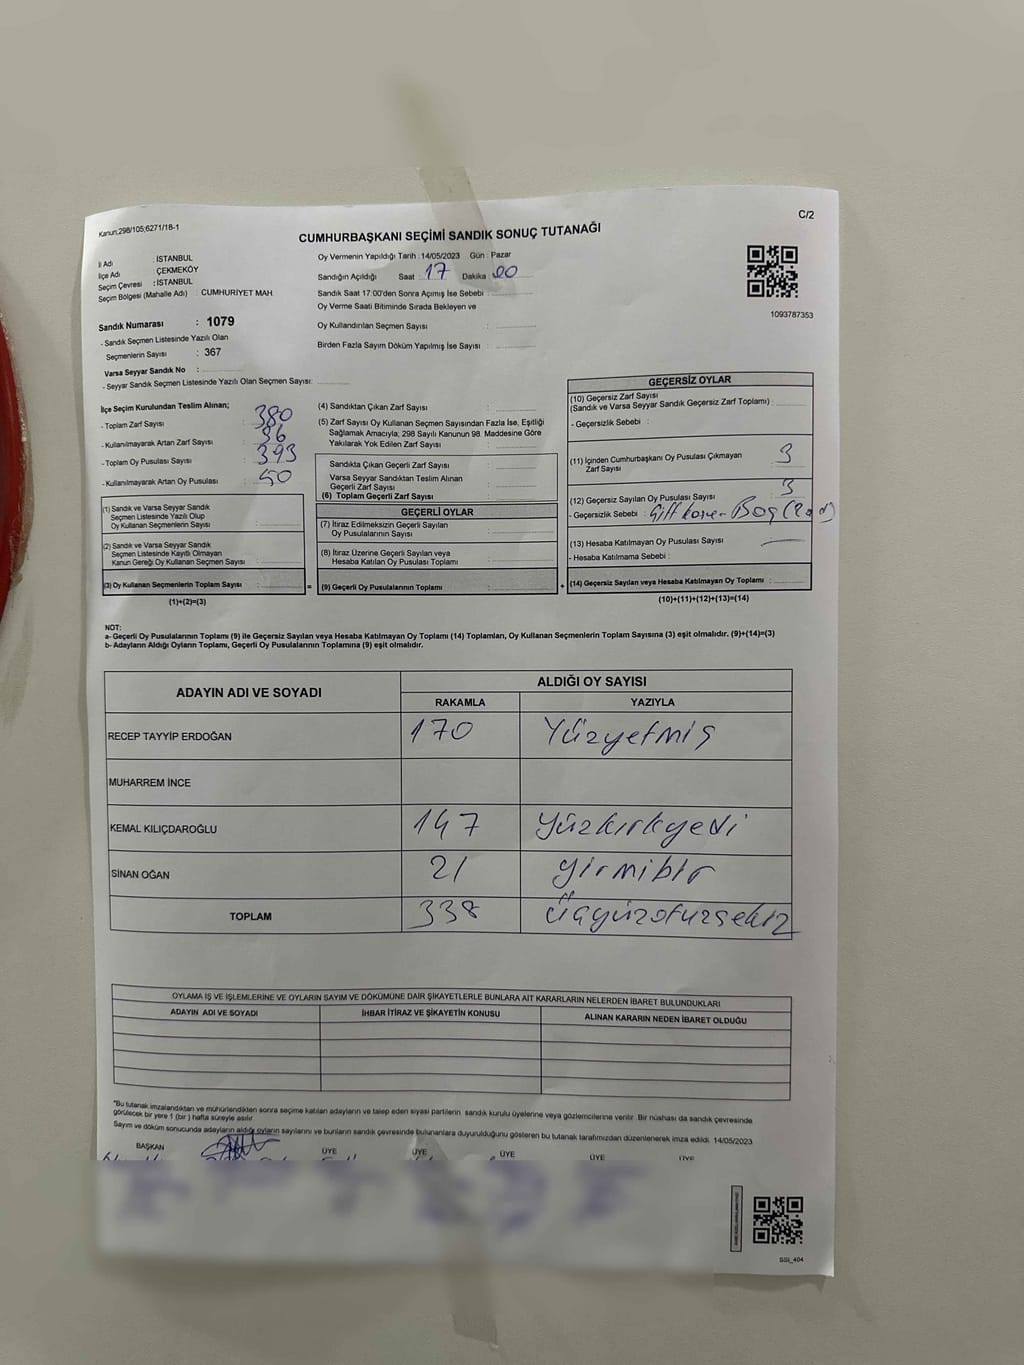 Kanun;298/105;6271/18-1
C/2
CUMHURBAŞKANI SEÇİMİ SANDIK SONUÇ TUTANAĞI
İl Adı : İSTANBUL
İlçe Adı : ÇEKMEKÖY
Seçim Çevresi : İSTANBUL
Seçim Bölgesi (Mahalle Adı) : CUMHURİYET MAH
Sandık Numarası : 1079
- Sandık Seçmen Listesinde Yazılı Olan
Seçmenlerin Sayısı : 367
Varsa Seyyar Sandık No :
- Seyyar Sandık Seçmen Listesinde Yazılı Olan Seçmen Sayısı:
Oy Vermenin Yapıldığı Tarih : 14/05/2023 Gün : Pazar
Sandığın Açıldığı Saat 17 Dakika : 00
Sandık Saat 17.00'den Sonra Açımış İse Sebebi :
Oy Verme Saati Bitiminde Sırada Bekleyen ve
Oy Kullandırılan Seçmen Sayısı :
Birden Fazla Sayım Döküm Yapılmış İse Sayısı :
1093787353
İlçe Seçim Kurulundan Teslim Alınan;
- Toplam Zarf Sayısı : 380
- Kullanılmayarak Artan Zarf Sayısı : 36
- Toplam Oy Pusulası Sayısı : 393
- Kullanılmayarak Artan Oy Pusulası : 50
(1) Sandık ve Varsa Seyyar Sandık
Seçmen Listesinde Yazılı Olup
Oy Kullanan Seçmenlerin Sayısı :
(2) Sandık ve Varsa Seyyar Sandık
Seçmen Listesinde Kayıtlı Olmayan
Kanun Gereği Oy Kullanan Seçmen Sayısı :
(3) Oy Kullanan Seçmenlerin Toplam Sayısı :
=
(1)+(2)=(3)
(4) Sandıktan Çıkan Zarf Sayısı :
(5) Zarf Sayısı Oy Kullanan Seçmen Sayısından Fazla İse, Eşitliği
Sağlamak Amacıyla, 298 Sayılı Kanunun 98. Maddesine Göre
Yakılarak Yok Edilen Zarf Sayısı :
Sandıkta Çıkan Geçerli Zarf Sayısı :
Varsa Seyyar Sandıktan Teslim Alınan
Geçerli Zarf Sayısı :
(6) Toplam Geçerli Zarf Sayısı :
GEÇERLİ OYLAR
(7) İtiraz Edilmeksizin Geçerli Sayılan
Oy Pusulalarının Sayısı :
(8) İtiraz Üzerine Geçerli Sayılan veya
Hesaba Katılan Oy Pusulası Toplamı :
(9) Geçerli Oy Pusulalarının Toplamı :
+
GEÇERSİZ OYLAR
(10) Geçersiz Zarf Sayısı
(Sandık ve Varsa Seyyar Sandık Geçersiz Zarf Toplamı) :
- Geçersizlik Sebebi :
(11) İçinden Cumhurbaşkanı Oy Pusulası Çıkmayan
Zarf Sayısı : 3
(12) Geçersiz Sayılan Oy Pusulası Sayısı : 3
- Geçersizlik Sebebi : Boş
(13) Hesaba Katılmayan Oy Pusulası Sayısı :
- Hesaba Katılmama Sebebi :
(14) Geçersiz Sayılan veya Hesaba Katılmayan Oy Toplamı :
(10)+(11)+(12)+(13)=(14)
NOT:
a- Geçerli Oy Pusulalarının Toplamı (9) ile Geçersiz Sayılan veya Hesaba Katılmayan Oy Toplamı (14) Toplamları, Oy Kullanan Seçmenlerin Toplam Sayısına (3) eşit olmalıdır. (9)+(14)=(3)
b- Adayların Aldığı Oyların Toplamı, Geçerli Oy Pusulalarının Toplamına (9) eşit olmalıdır.
ADAYIN ADI VE SOYADI
ALDIĞI OY SAYISI
RAKAMLA YAZIYLA
RECEP TAYYİP ERDOĞAN 170 Yüzyetmiş
MUHARREM İNCE
KEMAL KILIÇDAROĞLU 147 Yüzkırkyedi
SİNAN OĞAN 21 yirmibir
TOPLAM 338 Üçyüzotuzsekiz
OYLAMA İŞ VE İŞLEMLERİNE VE OYLARIN SAYIM VE DÖKÜMÜNE DAİR ŞİKAYETLERLE BUNLARA AİT KARARLARIN NELERDEN İBARET BULUNDUKLARI
ADAYIN ADI VE SOYADI İHBAR İTİRAZ VE ŞİKAYETİN KONUSU ALINAN KARARIN NEDEN İBARET OLDUĞU
"Bu tutanak imzalandıktan ve mühürlendikten sonra seçime katılan adayların ve talep eden siyasi partilerin sandık kurulu üyelerine veya gözlemcilerine verilir. Bir nüshası da sandık çevresinde
görülecek bir yere 1 (bir) hafta süreyle asılır.
Sayım ve döküm sonucunda adayların aldığı oyların sayılarını ve bunların sandık çevresinde bulunanlara duyurulduğunu gösteren bu tutanak tarafımızdan düzenlenerek imza edildi. 14/05/2023
BAŞKAN ÜYE ÜYE ÜYE ÜYE ÜYE
SSI_404